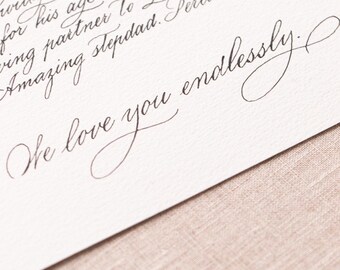 for his age
ving partner to
Amazing stepdad.
We love you endlessly.